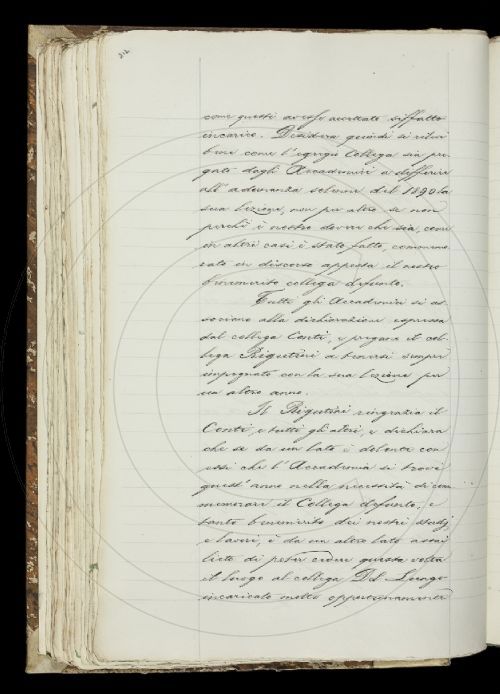 312
come questi avesse accettato siffatto
incarico. Desidera quindi si ritui
bene come l'egregio Collega sia pre-
gato dagli Accademici a differire
all'adunanza solenne del 1890 la
sua lezione, non per altro se non
perchè è nostro dovere che sia, come
in altri casi è stato fatto, commemo-
rato in discorso apposta il nostro
benemerito collega defunto.
Tutti gli Accademici si as-
sociano alla dichiarazione espressa
dal collega Conti, e pregare il col-
lega Rigutini a tenersi sempre
impegnato con la sua lezione per
un altro anno.
Il Rigutini ringrazia il
Conti, e tutti gli altri, e dichiara
che se da un lato è dolente con
essi che l'Accademia si trovi
quest'anno nella necessità di com
memorare il Collega defunto, e
tanto benemerito dei nostri studj
e lavori, è da un altro lato assai
lieto di poter cedere questa volta
il luogo al collega Del Lungo
incaricato molto opportunamente